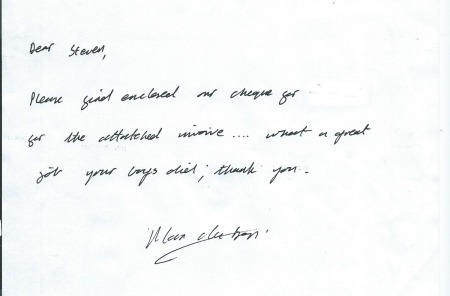 Dear Steven,
Please find enclosed our cheque for
for the attatched invoice .... what a great
job your boys did; thank you.